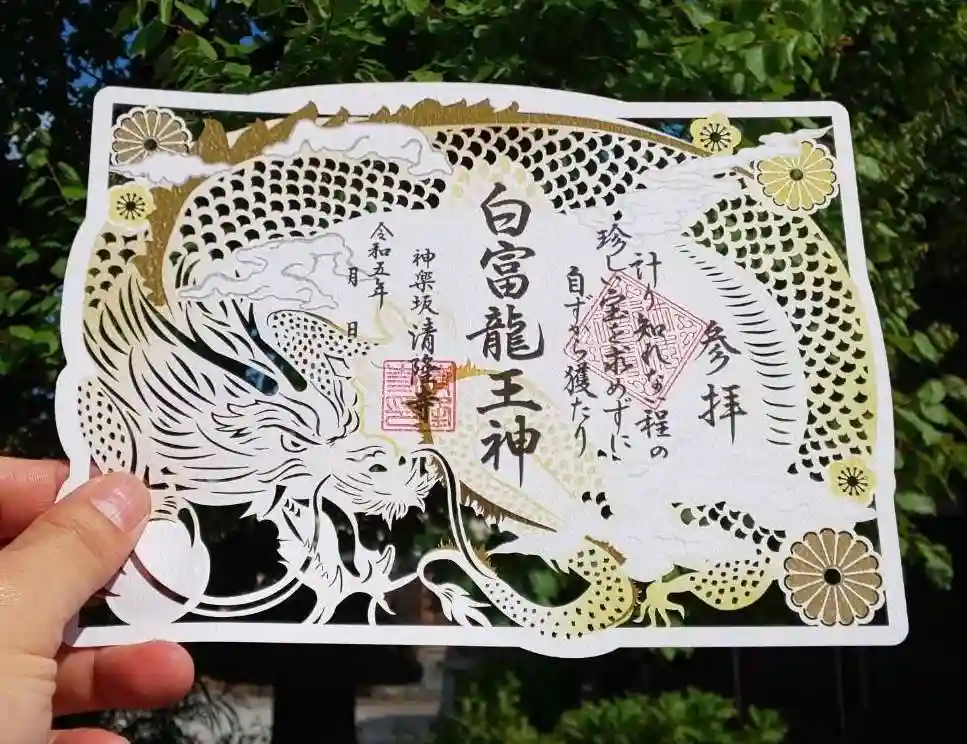 参拝
計り知れな程の
珍し宝を求めずに
自ずから獲たり
白富龍王神
神楽坂 清隆寺
令和五年 月 日